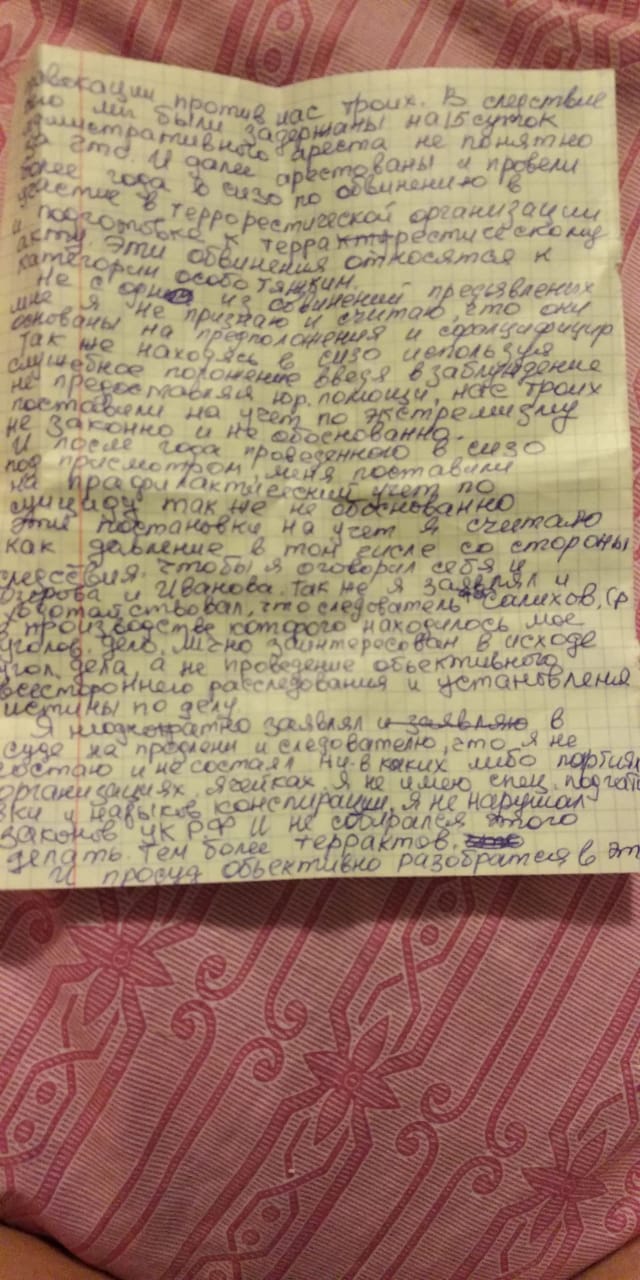 овокации против нас троих. В следствие
чего мы были задержаны на 15 суток
административного ареста не понятно
за что. И далее арестованы и провели
более года в сизо по обвинению в
участие в террорестической организации
и подготовка к террактерестическому
акту. Эти обвинения относятся к
категории особо тяжким.
Не с одн из обвинений предъявленых
мне я не признаю и считаю, что они
основаны на предположения и сфальцифицир
Так же находясь в сизо используя
служебное положение введя в заблуждение
не предоставляя юр. помощи, нас троих
поставели на учет по экстремизму
не законно и не обоснованно.
И после года проведенного в сизо
под присмотром, меня поставили
на профилактический учет по
суициду так же не обоснованно
Эти постановки на учет я считаю
как давление в том числе со стороны
следствия. Чтобы я оговорил себя и
и Иванова. Так же я заявлял и
ходотайствовал, что следователь Салихов, ср
в производстве которого находилось мое
уголов. дело, лично заинтересован в исходе
угол. дела, а не проведение обьективного
всестороннего расследования и установленя
истины по делу.
Я неоднократно заявлял и заявляю в
суде на продлени и следователю, что я не
состаю и не состоял ни в каких либо партиях
организациях, ячейках, я не имею спец. подгато
вки и навыков конспирации, я не нарушал
законов УК РФ и не собирался этого
делать. Тем более террактов.
И просуд обьективно разобратся в эт